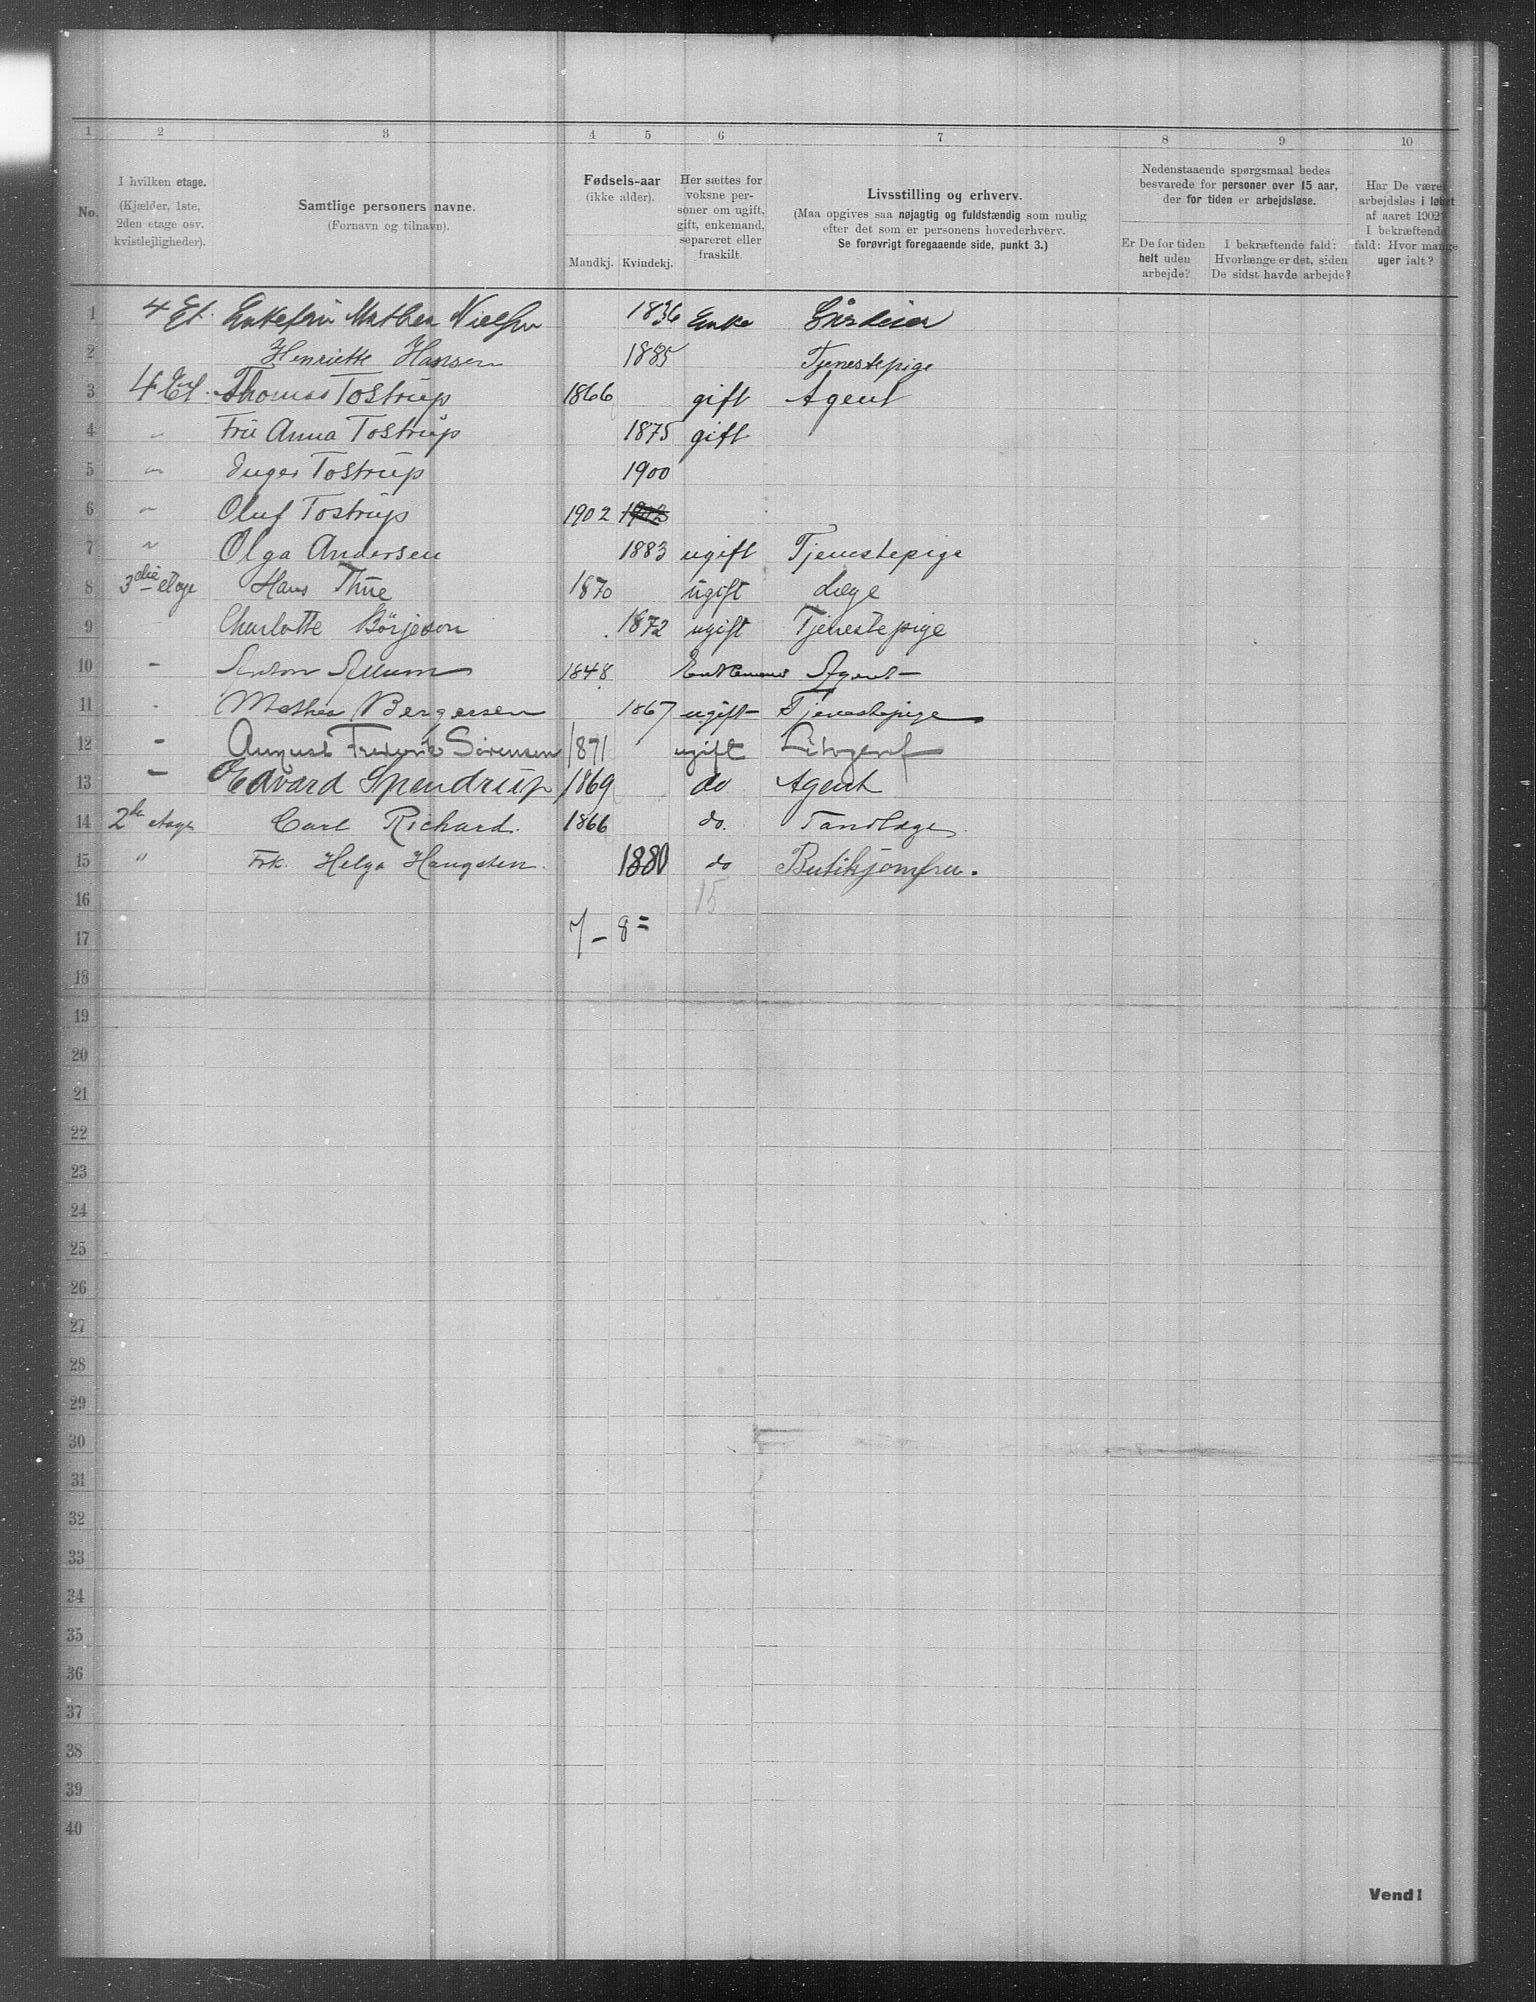 1 2 3 4 5 6 7 8 9 10
No.
I hvilken etage.
(Kjælder, 1ste,
2den etage osv.
kvistlejligheder).
Samtlige personers navne.
(Fornavn og tilnavn).
Fødsels-aar
(ikke alder).
Mandkj. Kvindekj.
Her sættes for
voksne per-
soner om ugift,
gift, enkemand,
separeret eller
fraskilt.
Livsstilling og erhverv.
(Maa opgives saa nøjagtig og fuldstændig som mulig
efter det som er personens hovederhverv.
Se forøvrigt foregaaende side, punkt 3.)
Nedenstaaende spørgsmaal bedes
besvarede for personer over 15 aar,
der for tiden er arbejdsløse.
Er De for tiden
helt uden
arbejde?
I bekræftende fald:
Hvorlænge er det, siden
De sidst havde arbejde?
Har De været
arbejdsløs i løbet
af aaret 1902?
I bekræftende
fald: Hvor mange
uger ialt?
1 4 Et. Enkefru Mathea Nielsen 1836 Enke
2 Henriette Hansen 1885 Tjenestepige
3 4 Et. Thomas Tostrup 1866 gift Agent
4 " Fru Anna Tostrup 1875 gift
5 " Inger Tostrup 1900
6 " Oluf Tostrup 1902
7 " Olga Andersen 1883 ugift Tjenestepige
8 3die etage Hans Thue 1870 ugift Læge
9 Charlotte Börjeson 1872 ugift Tjenestepige
10 - Anton 1848 Enkemand Agent
11 - Mathea Bergersen 1867 ugift Tjenestepige
12 - August Frederik Sørensen 1871 ugift Litograf
13 - Edvard Spendrup 1869 do Agent
14 2de etage Carl Richard. 1866 do. Tandlæge.
15 " Frk. Helga Haugsten. 1880 do Butikjomfru.
16 15
17 7 - 8 =
18
19
20
21
22
23
24
25
26
27
28
29
30
31
32
33
34
35
36
37
38
39
40
Vend!